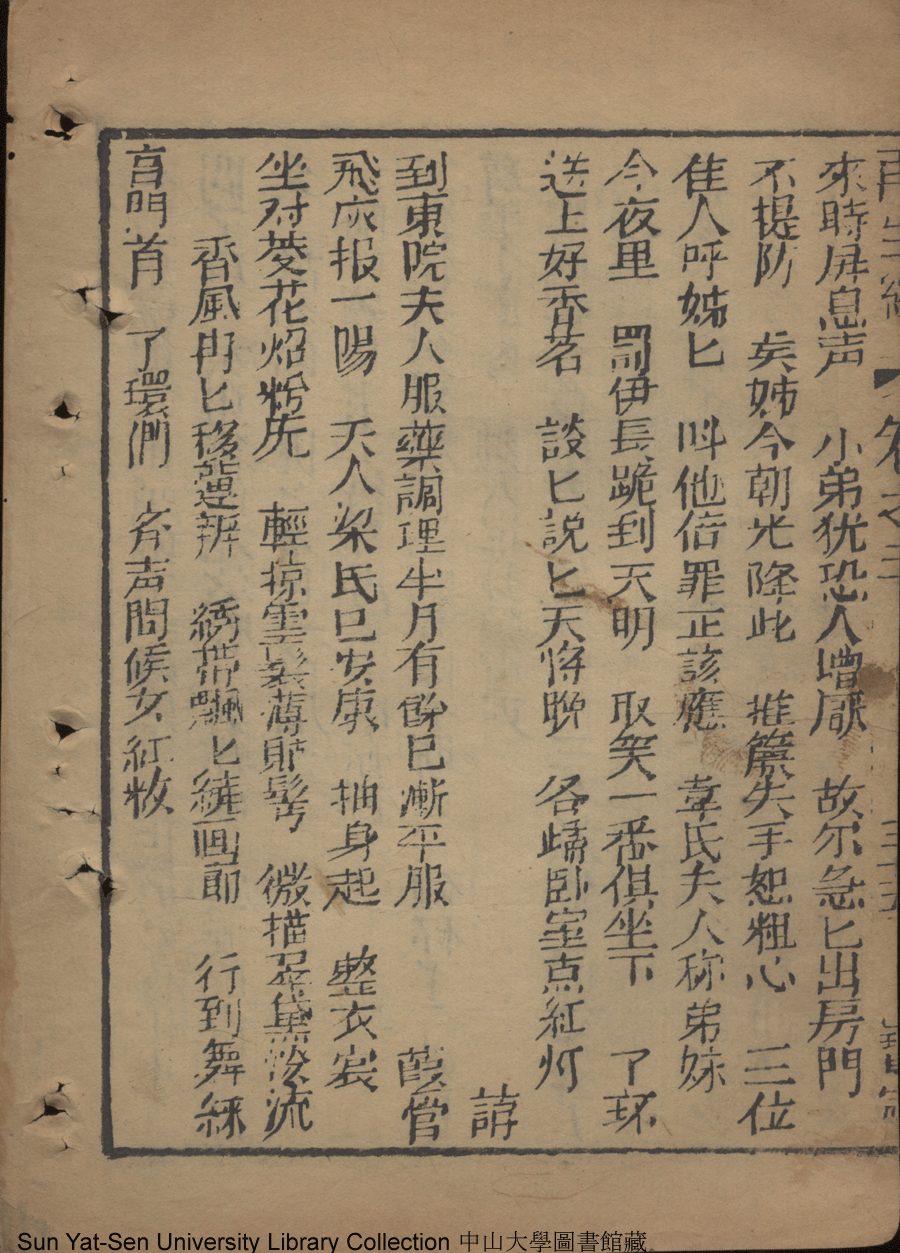 再生緣 卷之三
來時屏息声 小弟犹恐人增厭 故尔急匕出房門
不提防 矣姊今朝光降此 推簾失手恕粗心 三位
佳人呼姊匕 呌他倍罪正該應 韋氏夫人称弟妹
今夜里 罰伊長跪到天明 取笑一番俱坐下 了环
送上好香茗 談匕説匕天將晚 各歸卧室点紅灯
諱
到東院夫人服藥調理半月有餘已漸平服 葭管
飛灰报一陽 夫人梁氏已安康 抽身起 整衣裳
坐对菱花炤粉 輕掠雲髮薄貼 微描翠黛 流
香風冉匕移蓮 綉帶飄匕 画 行到舞
門首 了環們 斉声問候女紅妝
Sun Yat-Sen University Library Collection 中山大學圖書館藏